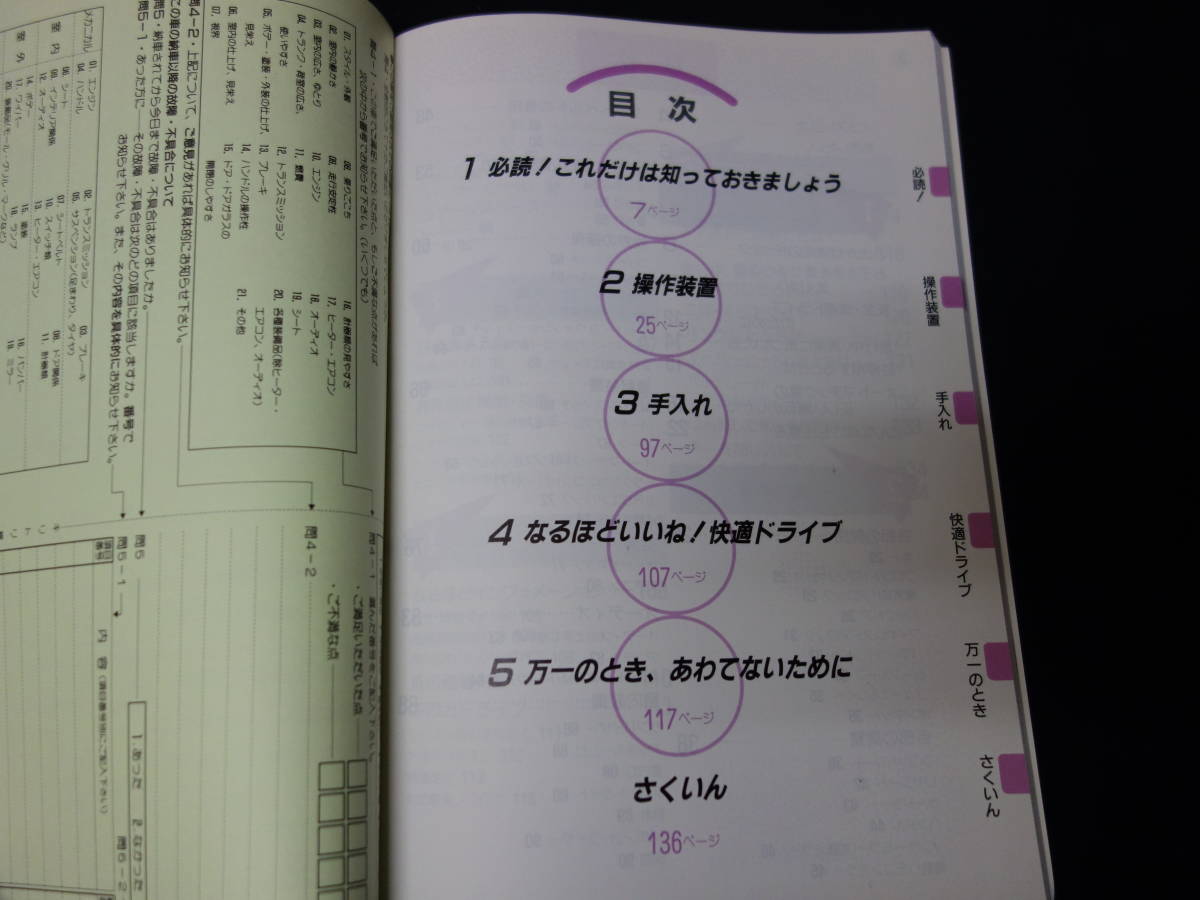 目次
1 必読！これだけは知っておきましょう
7ページ
2 操作装置
25ページ
3 手入れ
97ページ
4 なるほどいいね！快適ドライブ
107ページ
5 万一のとき、あわてないために
117ページ
さくいん
136ページ
必読！
操作装置
手入れ
快適ドライブ
万一のとき
さくいん
01. スタイル・外観
02. 室内の静かさ
03. 室内の広さ、ゆとり
04. トランク・荷室の広さ、
使いやすさ
05. ボデー・塗装・外装の仕上げ、
見栄え
06. 室内の仕上げ、見栄え
07. 視界
08. 乗りごこち
09. 走行安定性
10. エンジン
11. 燃費
12. トランスミッション
13. ブレーキ
14. ハンドルの操作性
15. ドア・ドアガラスの
開閉のしやすさ
16. 計器類の見やすさ
17. ヒーター・エアコン
18. オーディオ
19. シート
20. 各種装備品(除ヒーター・
エアコン、オーディオ)
21. その他
問4-2・上記について、ご意見があれば具体的にお知らせ下さい。
この車の納車以降の故障・不具合について
問5・納車されてから今日まで故障・不具合はありましたか。
問5-1・あった方に
その故障・不具合は次のどの項目に該当しますか。番号で
お知らせ下さい。また、その内容を具体的にお知らせ下さい。
メカニカル
01. エンジン
02. トランスミッション
03. ブレーキ
04. ハンドル
05. サスペンション(足まわり、タイヤ)
室内
06. シート
07. シートベルト
08. ドア関係
09. インテリア関係
10. スイッチ類
11. 計器類
12. オーディオ
13. ヒーター・エアコン
室外
14. ボデー
15. 塗装
16. バンパー
17. ワイパー
18. ランプ
19. ミラー
問4-1
・ご満足いただいた点
・ご不満な点
問4-2
問5
1. あった 2. なかった
問5-1
項目番号
内容
問5-2